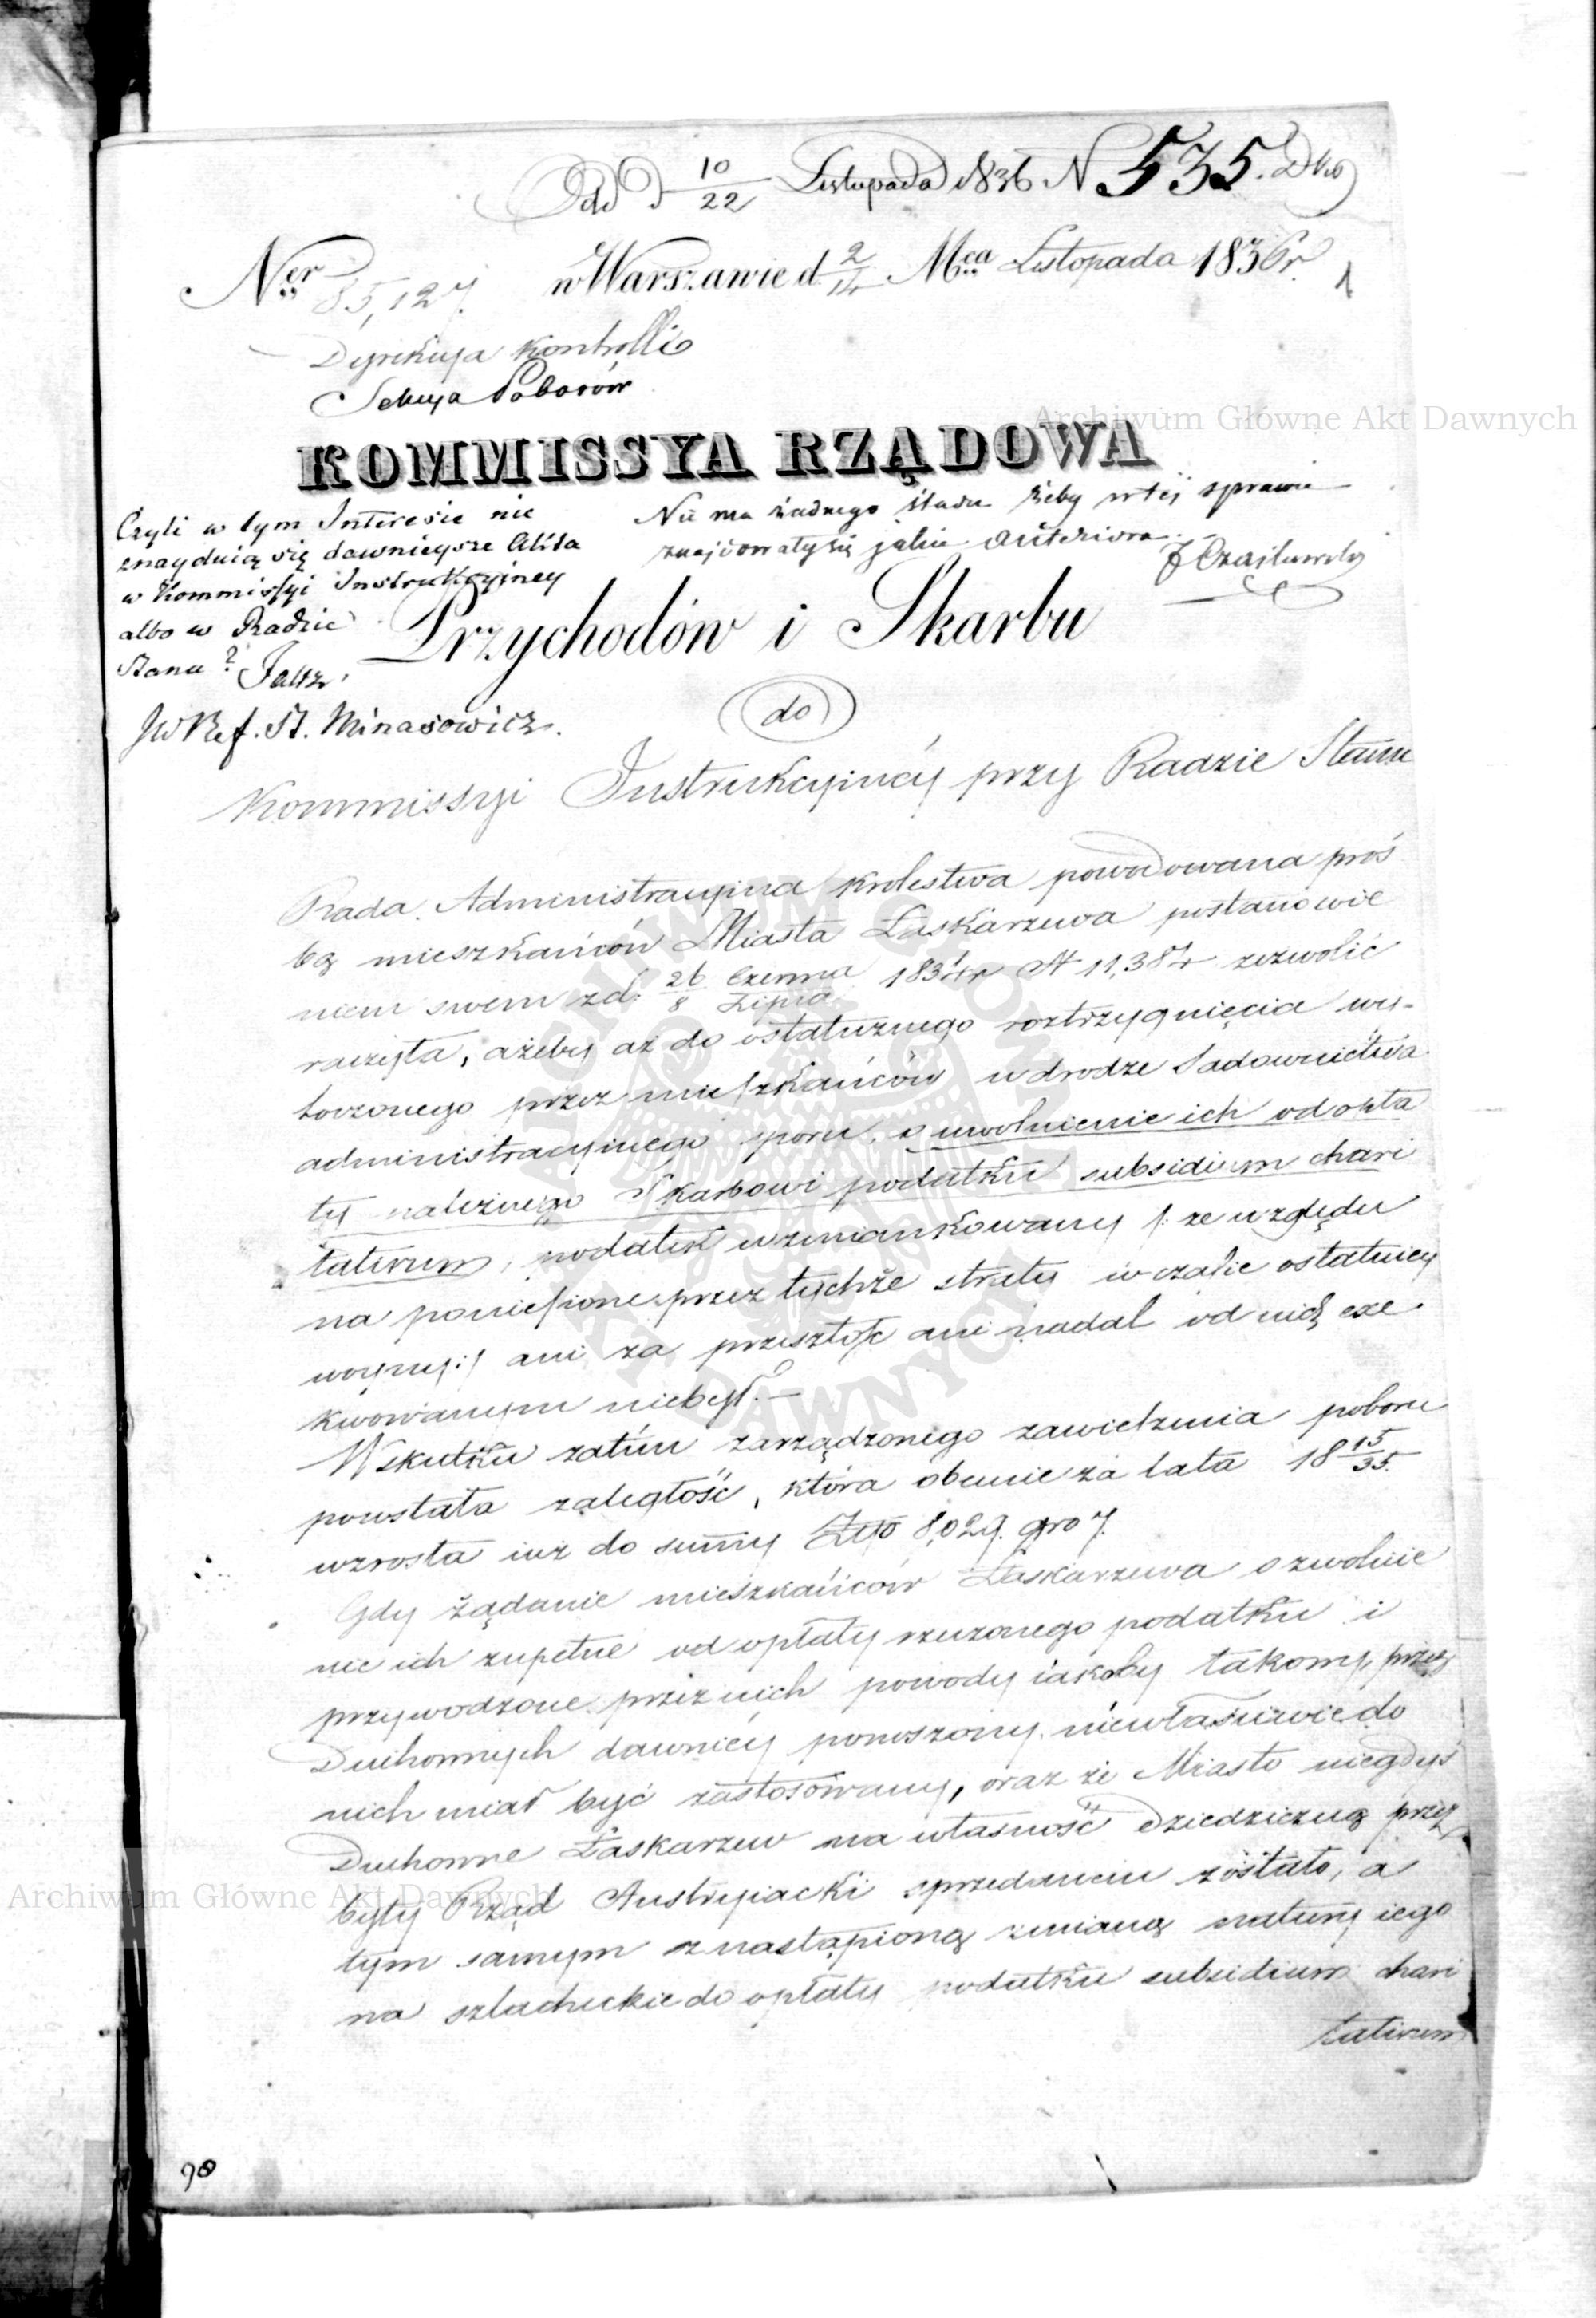 Odd 10/22 Listopada 1836 N 535. Dko
1
Ner 85,127. w Warszawie d. 2/14 Mca Listopada 1836r.
Dyrekcya Kontrolli
Sekcya Poborów
Archiwum Główne Akt Dawnych
KOMMISSYA RZĄDOWA
Czyli w tym Interesie nie
znayduią się dawnieysze Akta
w Kommissyi Instrukcyiney
albo w Radzie
Stanu?
JW Ref. St. Minasowicz.
Nie ma żadnego śladu żeby w tej sprawie
znajdowały się jakie anteriora.
Przychodów i Skarbu
do
Kommissyi Instrukcyinéy przy Radzie Stanu
Rada Administracyina Krolestwa powodowana proś
bą mieszkańców Miasta Łaskarzewa postanowie
niem swem z d. 26 Czerwca / 8 Lipca 1834r N 11,384 zezwolić
raczyła, ażeby aż do ostatecznego roztrzygnięcia wy-
toczonego przez mieszkańców w drodze Sadownictwa
administracyinego sporu, o uwolnienie ich od opła
ty należnego Skarbowi podatku subsidium chari
tativum, podatek wzmiankowany /: ze względu
na poniesione przez tychże straty w czasie ostatniey
woyny :/ ani za przeszłość ani nadal od nich exe
kwowanym niebył. —
W skutku zatém zarządzonego zawieszenia poboru
powstała zaległość, która obecnie za lata 18 15/35.
wzrosła iuż do summy Złp 8,029. gro 7.
Gdy żądanie mieszkańców Łaskarzewa o zwolnie
nie ich zupełne od opłaty rzeczonego podatku i
przywodzone przez nich powody iakoby takowy, przez
Duchownych dawniéy ponoszony, niewłaściwie do
nich miał być zastosowany, oraz że Miasto niegdyś
Duchowne Łaskarzew na własność dziedziczną przez
były Rząd Austryiacki sprzedanem zostało, a
tym samym z nastąpioną zmianą natury iego
na szlacheckie do opłaty podatku subsidium chari
tativum
Archiwum Główne Akt Dawnych
ARCHIWUM GŁÓWNE AKT DAWNYCH
98